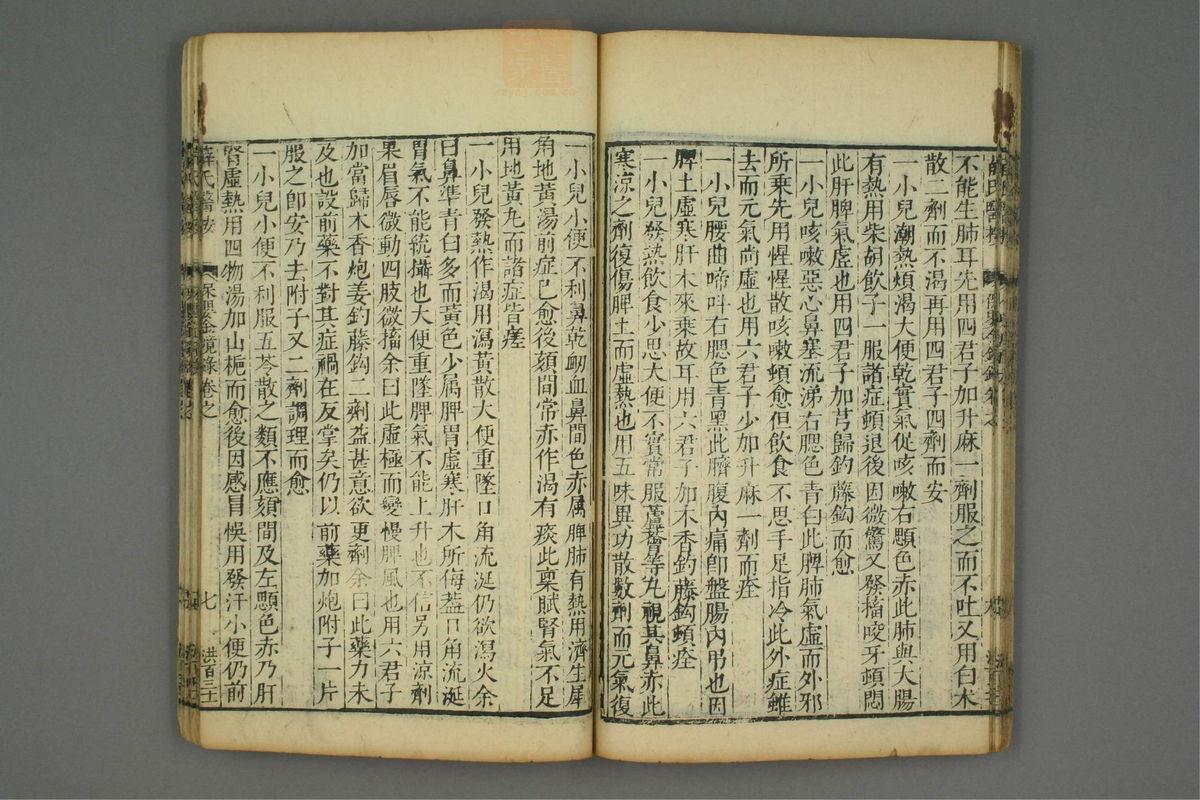 不能生肺耳先用四君子加升麻一劑服之而不吐又用白朮
散二劑而不渴再用四君子四劑而安
一小兒潮熱煩渴大便乾實氣促咳嗽右顋色赤此肺與大腸
有熱用柴胡飲子一服諸症頓退後因微驚又發搐咬牙頓悶
此肝脾氣虛也用四君子加芎歸釣藤鈎而愈
一小兒咳嗽惡心鼻塞流涕右腮色青白此脾肺氣虛而外邪
所乘先用惺惺散咳嗽頓愈但飲食不思手足指冷此外症雖
去而元氣尚虛也用六君子少加升麻一劑而痊
一小兒腰曲啼叫右腮色青黑此臍腹內痛卽盤腸內吊也因
脾土虛寒肝木來乘故耳用六君子加木香釣藤鈎頓痊
一小兒發熱飲食少思大便不實常服蘆薈等丸視其鼻赤此
寒凉之劑復傷脾土而虛熱也用五味異功散數劑而元氣復
一小兒小便不利鼻乾衂血鼻間色赤属脾肺有熱用濟生犀
角地黃湯前症已愈後頦間常赤作渴有痰此稟賦腎氣不足
用地黃丸而諸症皆痊
一小兒發熱作渴用瀉黃散大便重墜口角流涎仍欲瀉火余
曰鼻準青白多而黃色少属脾胃虛寒肝木所侮蓋口角流涎
胃氣不能統攝也大便重墜脾氣不能上升也不信另用凉劑
果眉唇微動四肢微搐余曰此虛極而變慢脾風也用六君子
加當歸木香炮姜釣藤鈎二劑益甚意欲更劑余曰此藥力未
及也設前藥不對其症禍在反掌矣仍以前藥加炮附子一片
服之卽安乃去附子又二劑調理而愈
一小兒小便不利服五苓散之類不應頦間及左顋色赤乃肝
腎虛熱用四物湯加山梔而愈後因感冒悞用發汗小便仍前
薛氏醫按
保嬰金鏡錄 卷之
七